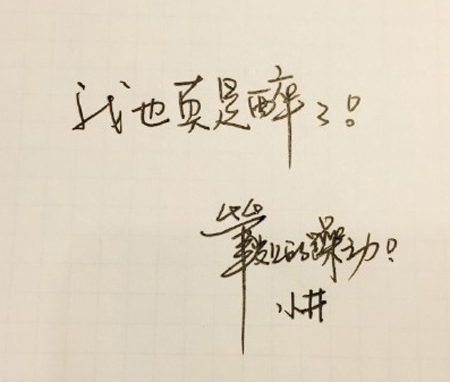 我也真是醉了!
筆尖上的躁动!
小井